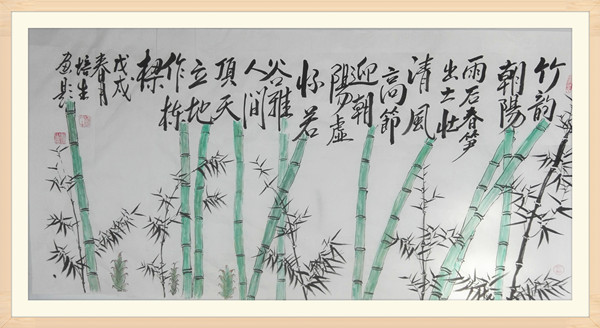 竹韵
朝陽
雨后春笋
出土壮
清風
高節
迎朝
陽虛
怀若
谷雅
人间
頂天
立地
作栋
樑
戊戌
春月
培生
画题